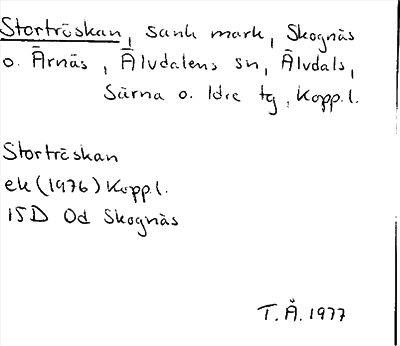 Storträskan, sank mark, Skognäs
o. Årnäs, Älvdalens sn, Älvdals,
Särna o. Idre tg, Kopp.l.
Storträskan
ek (1976) Kopp.l.
15D 0d Skognäs
T.Å. 1977